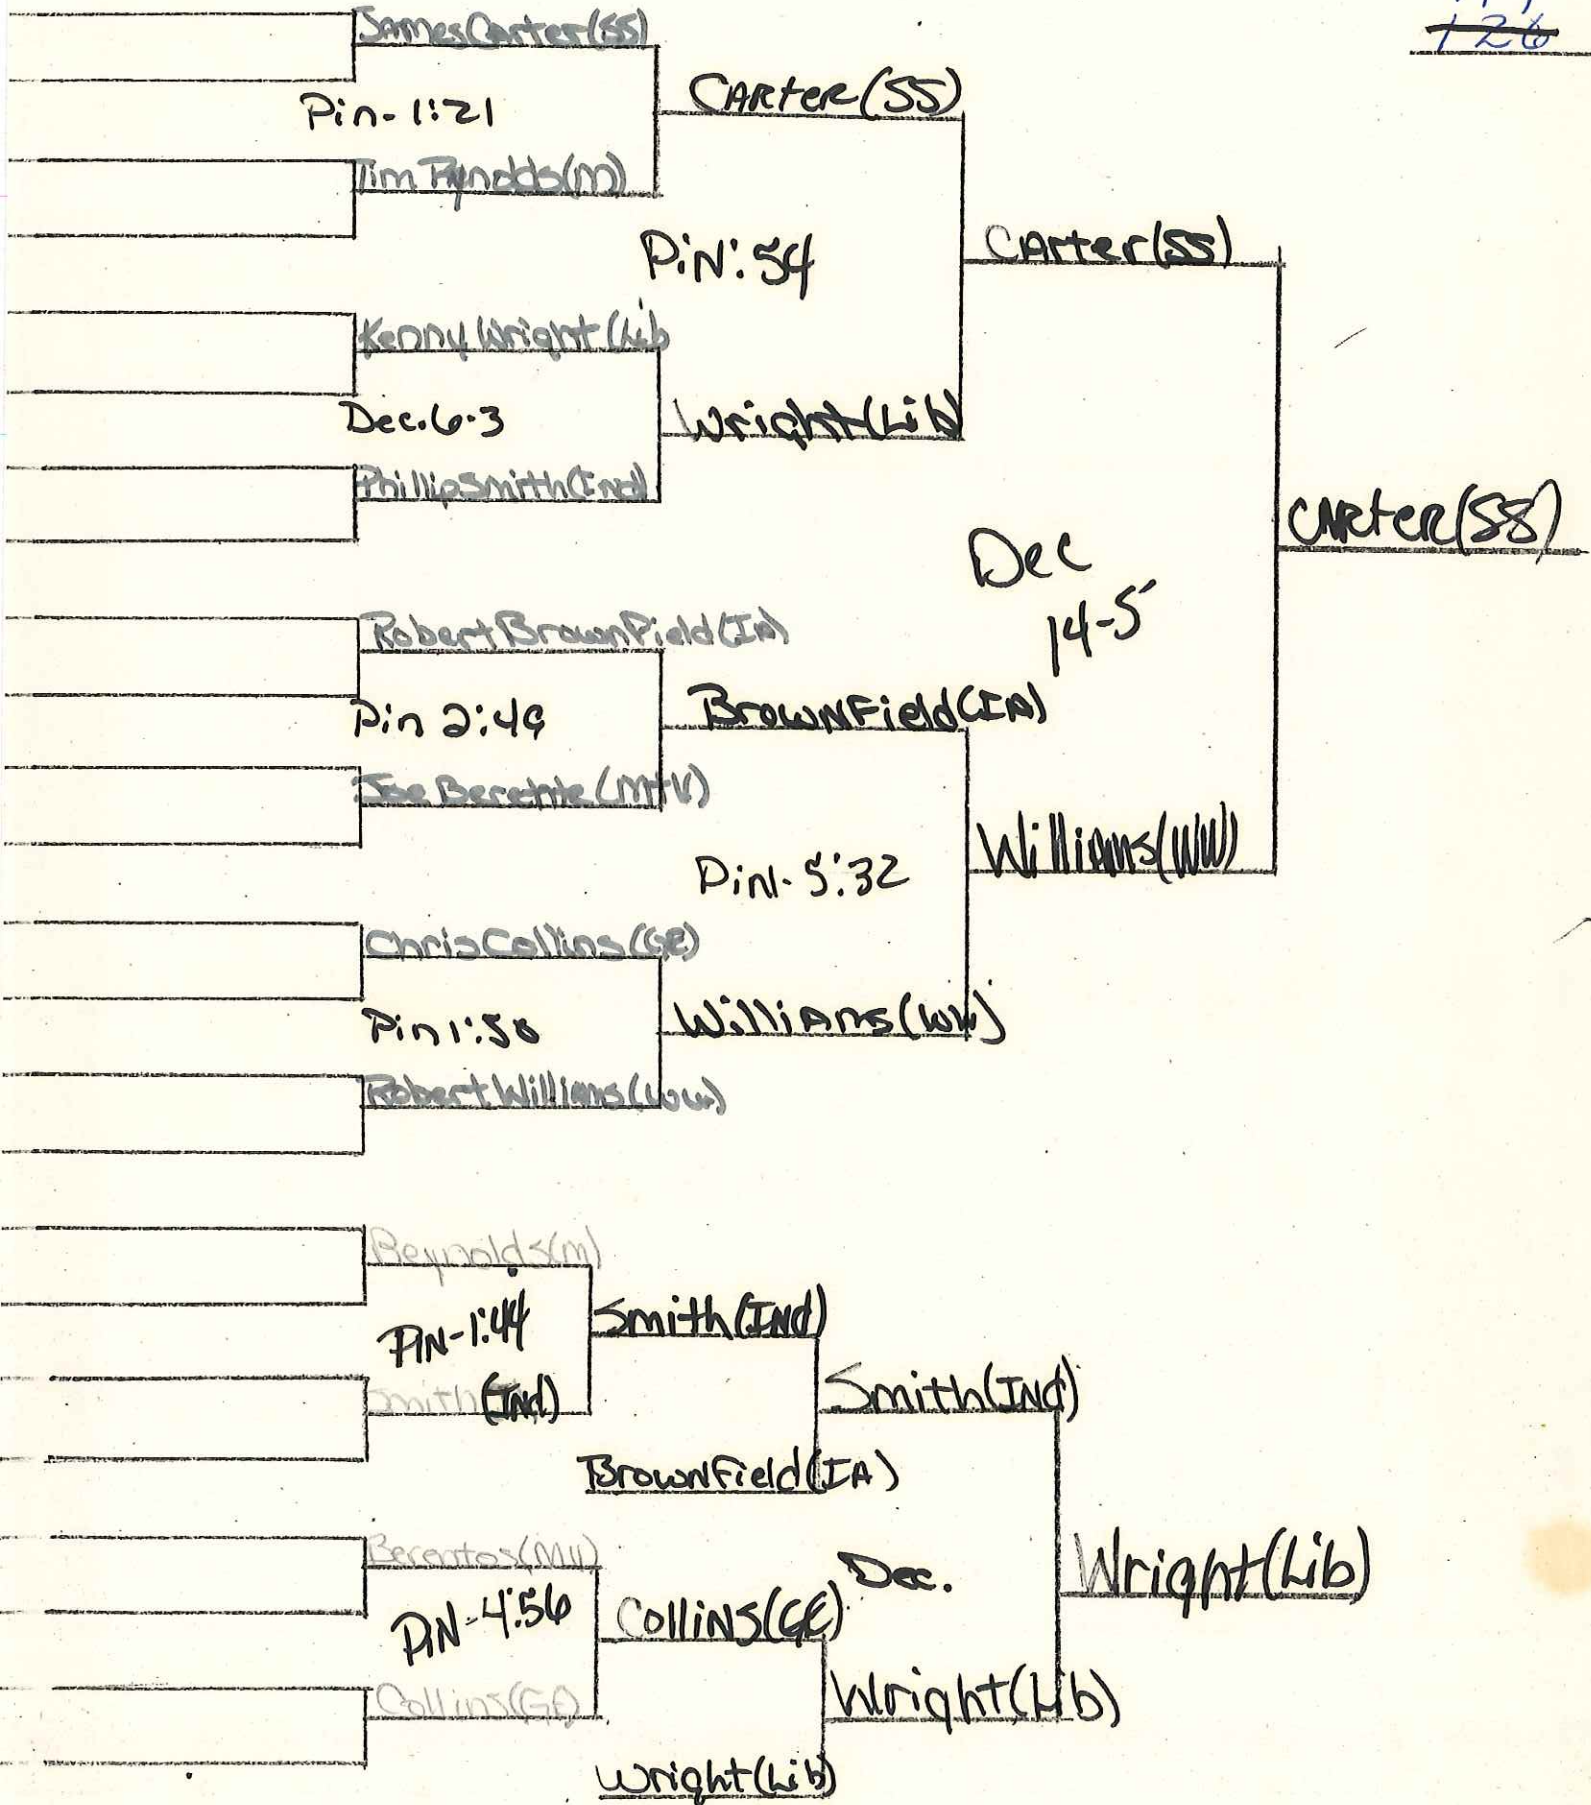 126
James Carter (SS)
Pin- 1:21
Tim Rynolds (M)
Carter (SS)
Pin :54
Kenny Wright (Lib
Dec. 6-3
Phillip Smith (Ind)
Wright (Lib)
Carter (SS)
Robert Brownfield (IA)
Pin 2:49
Joe Berentte (MtV)
Brownfield (IA)
Pin- 5:32
Chris Collins (GE)
Pin 1:50
Robert Williams (WW)
Williams (WW)
Williams (WW)
Dec
14-5
Carter (SS)
Reynolds (M)
Pin-1:44
Smith (Ind)
Smith (Ind)
Brownfield (IA)
Smith (Ind)
Berentos (MV)
Pin-4:56
Collins (GE)
Collins (GE)
Wright (Lib)
Dec.
Wright (Lib)
Wright (Lib)